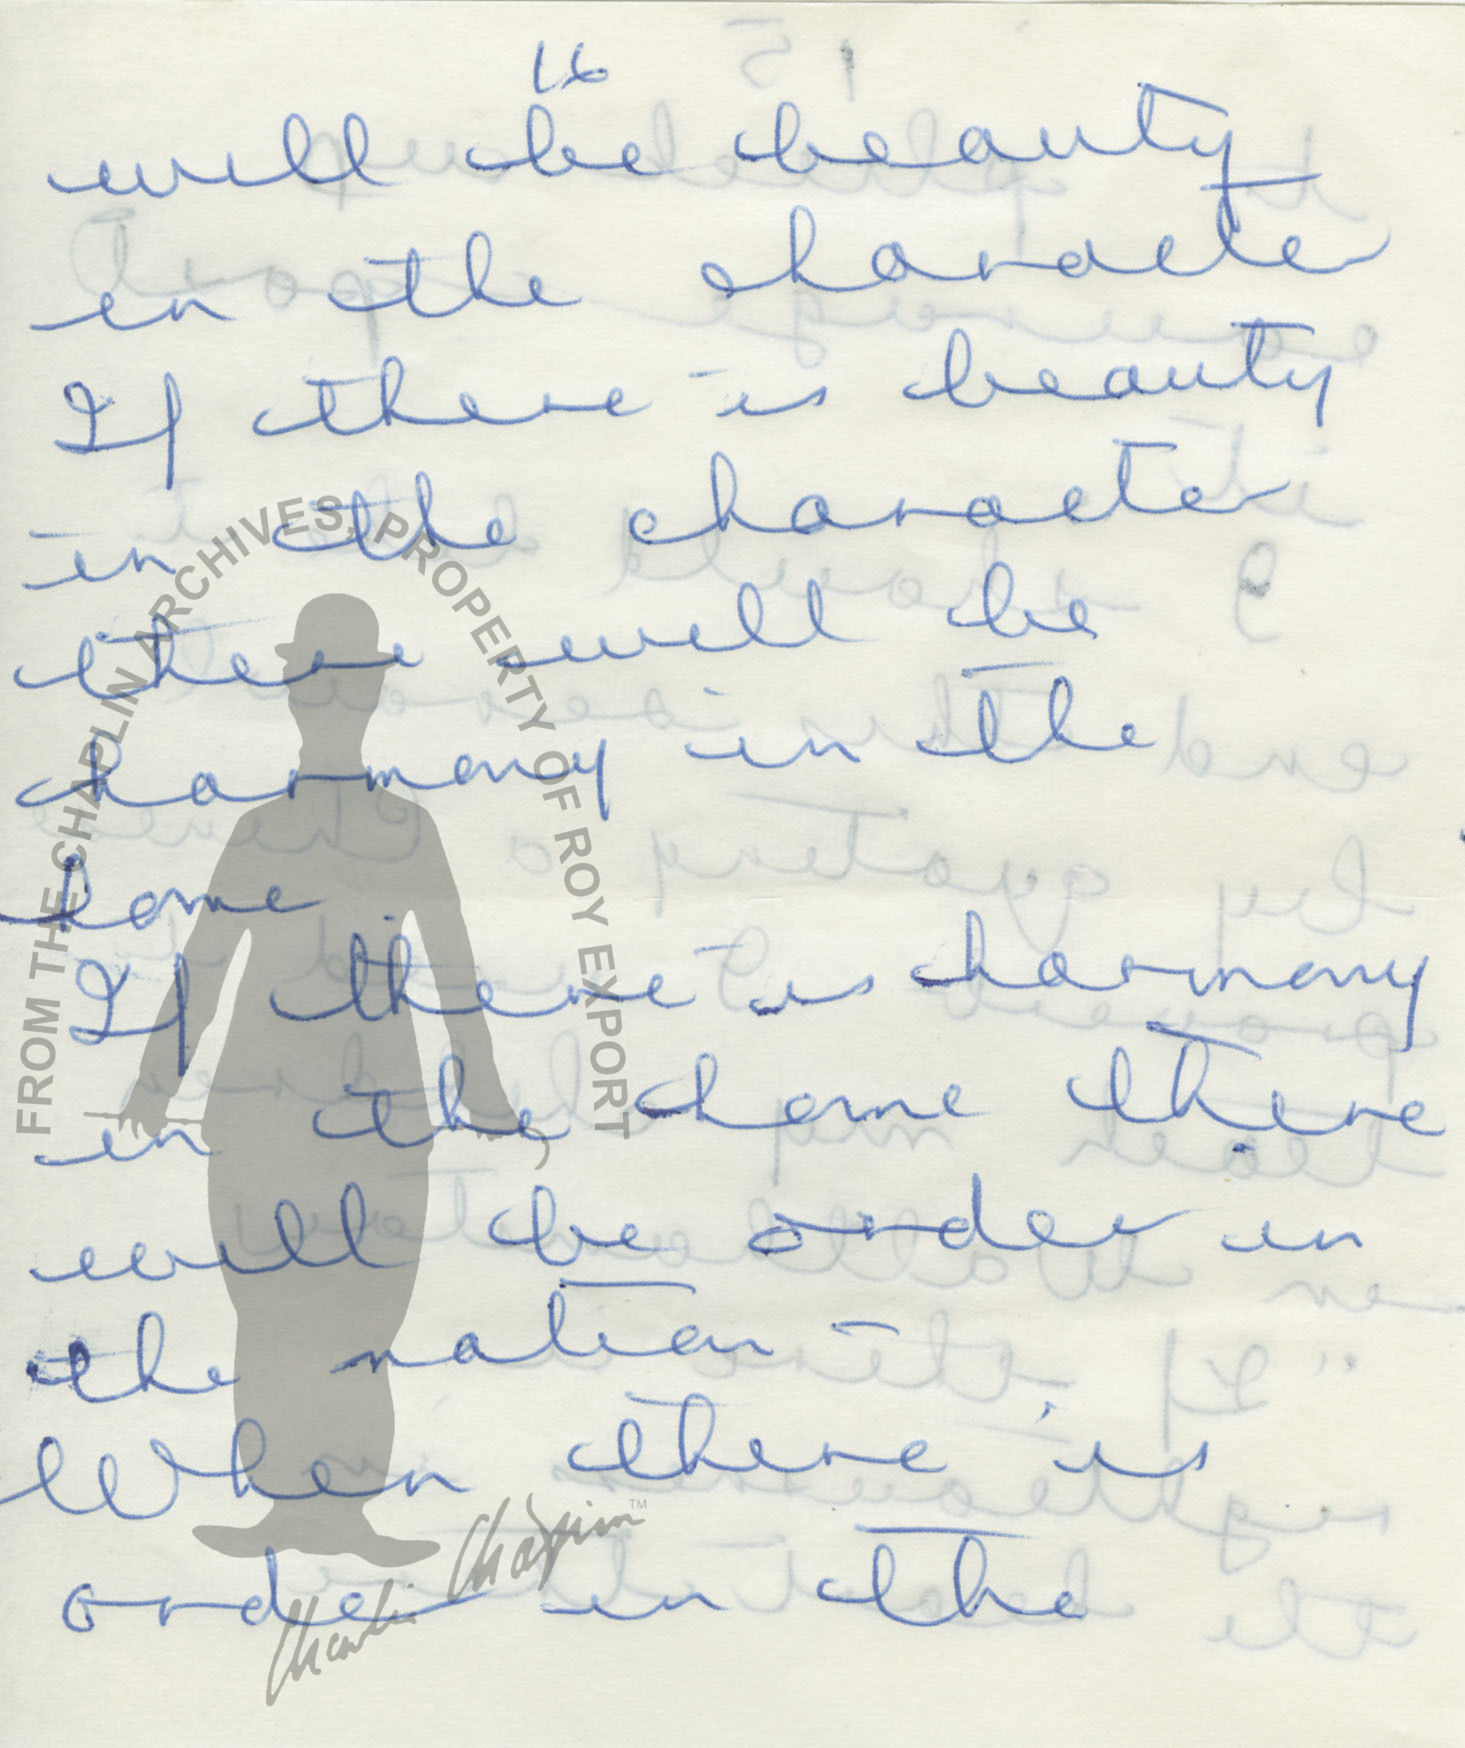 16
will be beauty
in the character
If there is beauty
in the character
there will be
harmony in the
home.
If there is harmony
in the home there
will be order in
the nation.
When there is
order in the
FROM THE CHAPLIN ARCHIVES, PROPERTY OF ROY EXPORT
Charlie Chaplin™